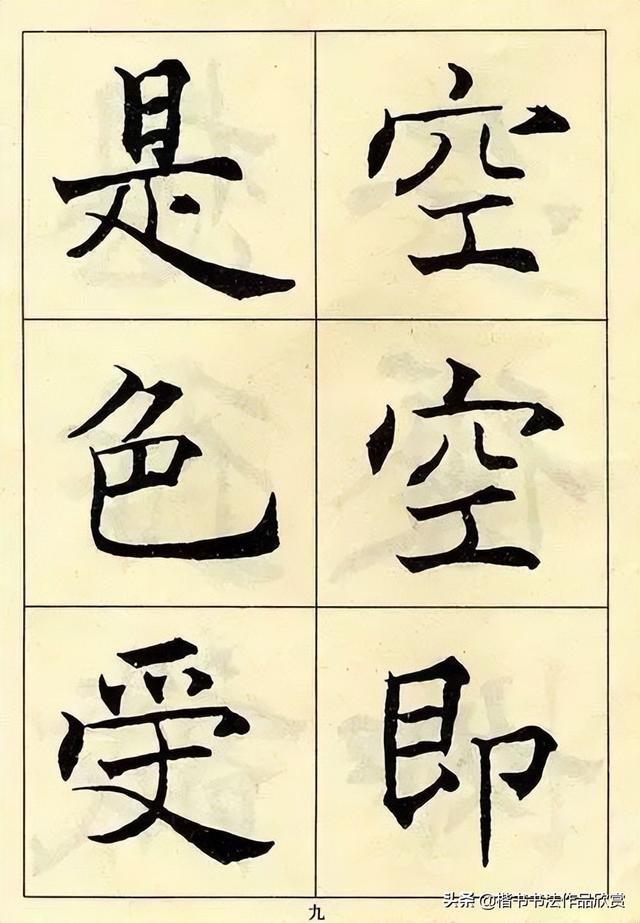 空空即
是色受
九
头条@楷书书法作品欣赏